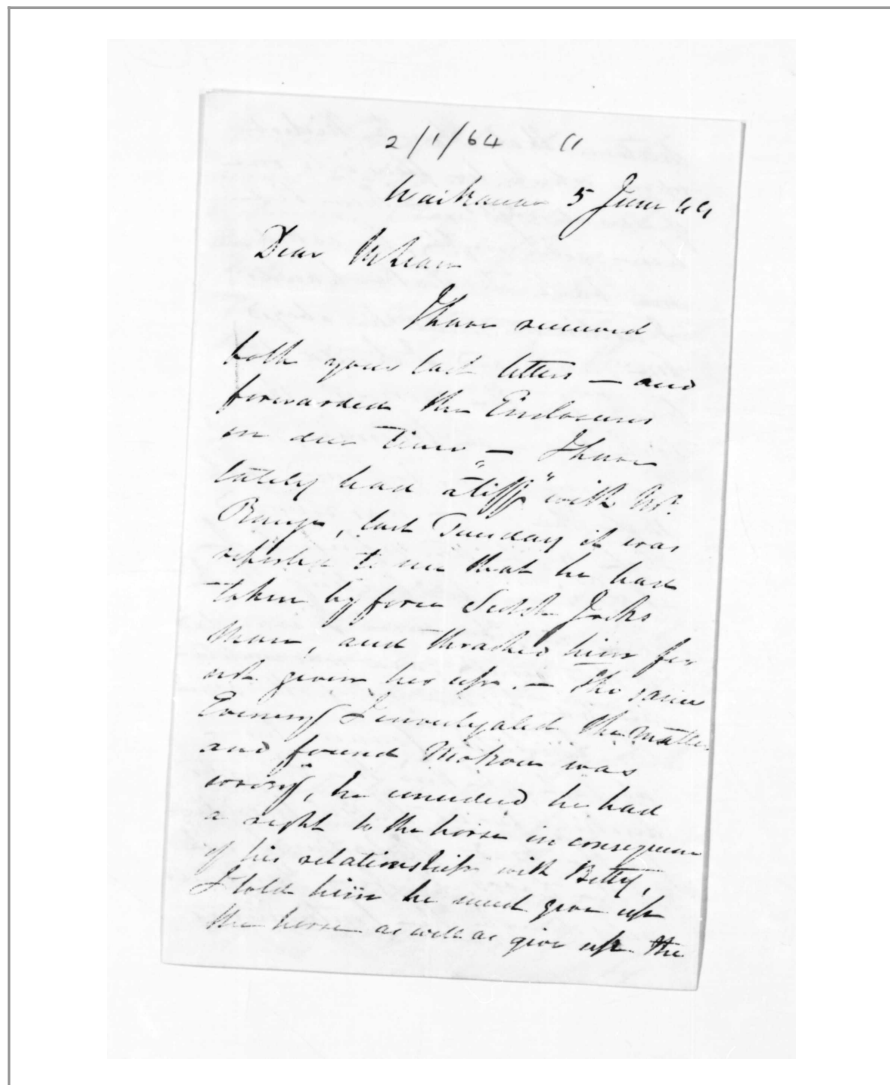 2/1/64
5 June
Dear McLean
I have received
both your last letters — and
forwarded the Enclosures
in due time — I have
lately had a "tiff" with Mr.
last Tuesday it was
to me that he had
taken by force Jacks
Mare, and thrashed him for
not given her up. — The same
Evening I investigated the matter
and found was
wrong, he he had
a right to the horse in consequence
of his relationship with Betty,
I told him he must give up
the horse as well as give up the